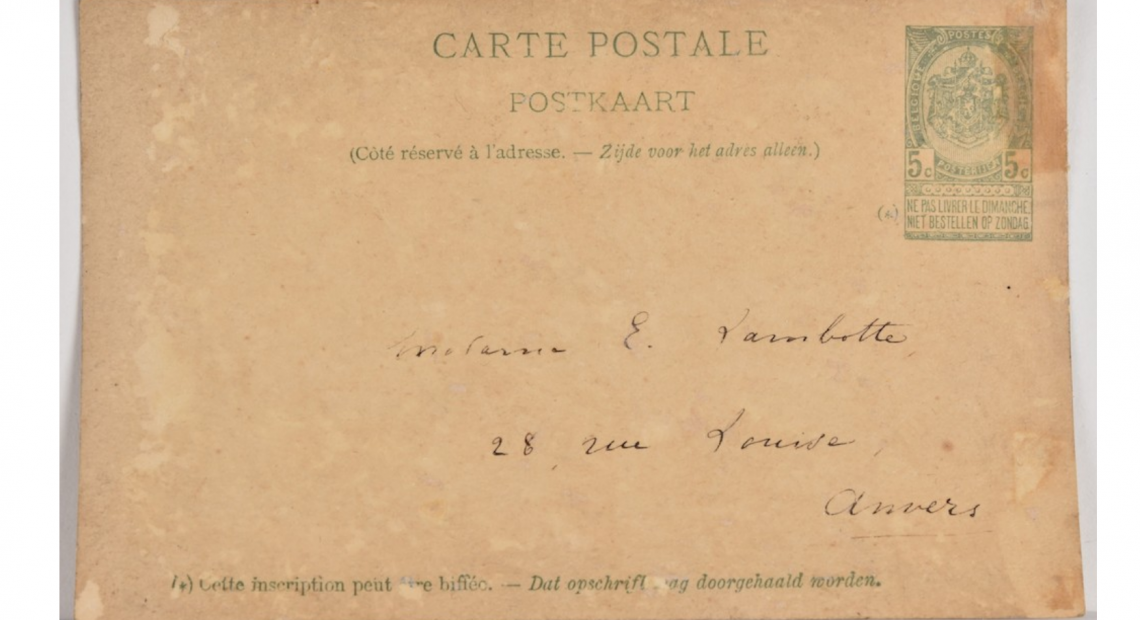 CARTE POSTALE
POSTKAART
(Côté réservé à l'adresse. — Zijde voor het adres alleen.)
POSTES
BELGIQUE
POSTERIJEN
5c 5c
(*) NE PAS LIVRER LE DIMANCHE
NIET BESTELLEN OP ZONDAG.
Madame E. Lambotte
28, rue Louise,
Anvers
(*) Cette inscription peut être biffée. — Dat opschrift mag doorgehaald worden.